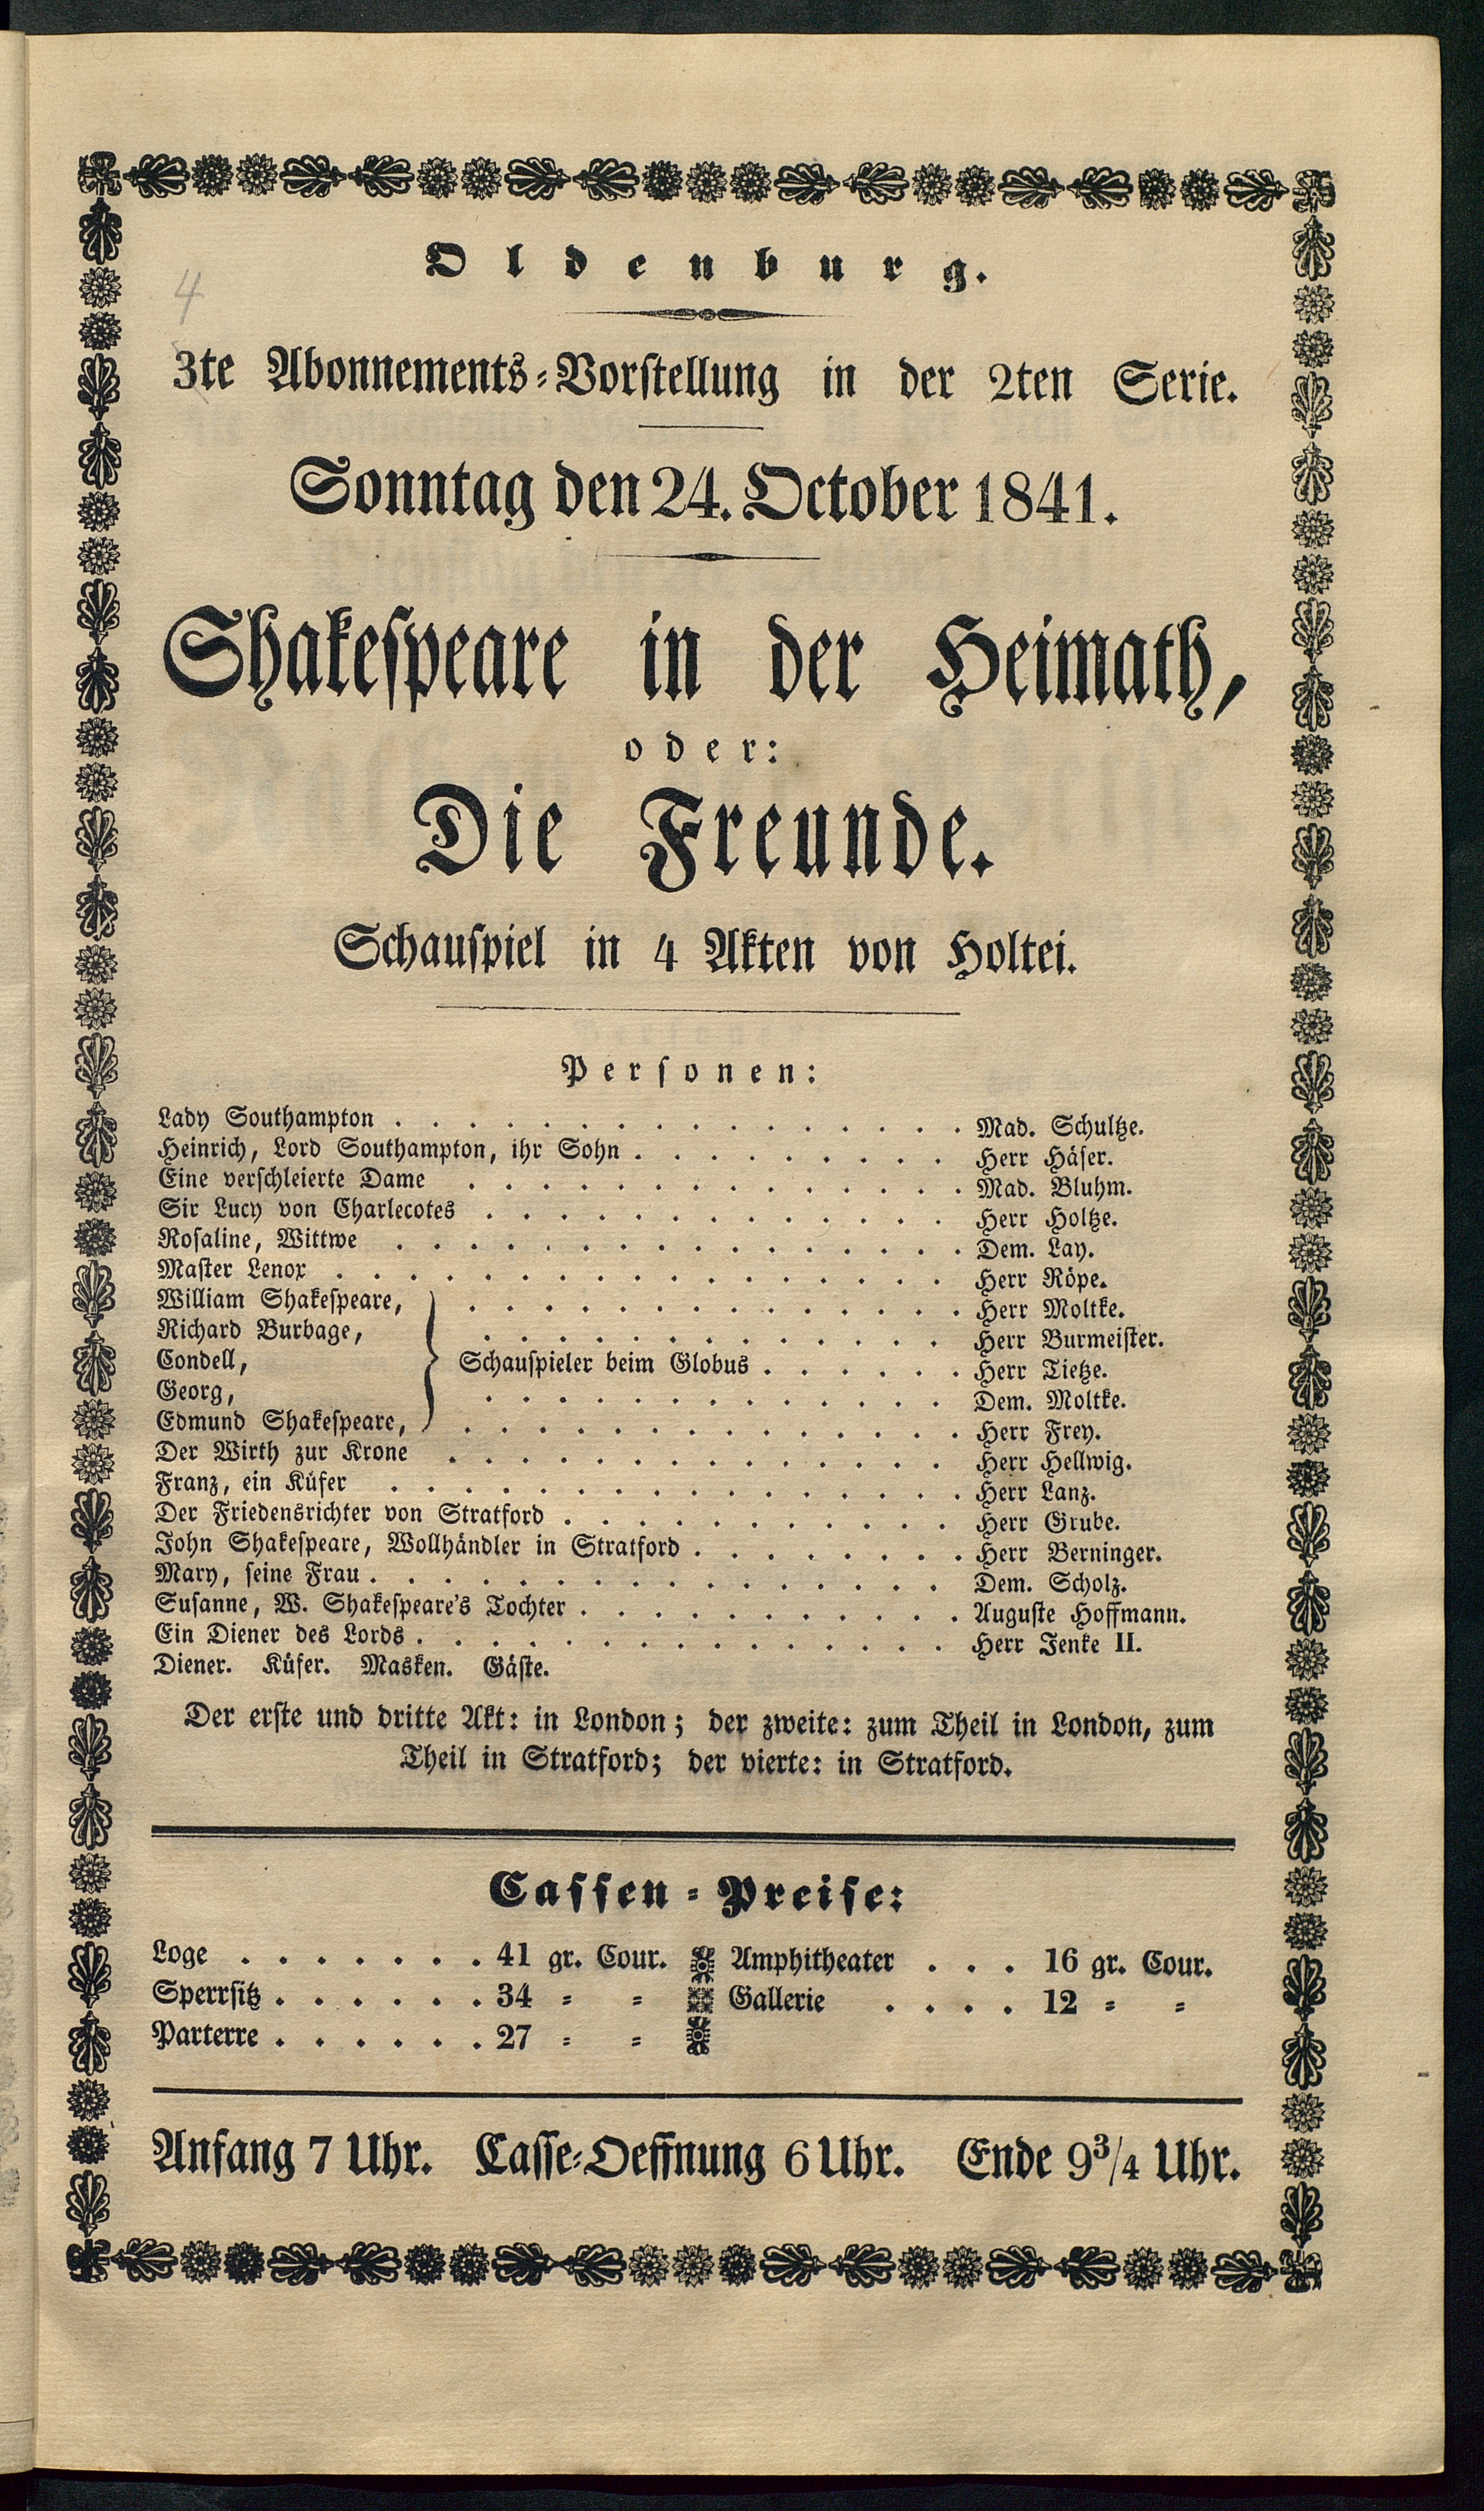 Oldenburg.
4
3te Abonnements-Vorstellung in der 2ten Serie.
Sonntag den 24. October 1841.
Shakespeare in der Heimath,
oder:
Die Freunde.
Schauspiel in 4 Akten von Holtei.
Personen:
Lady Southampton . . . . . . . . . . . . . . . . Mad. Schultze.
Heinrich, Lord Southampton, ihr Sohn . . . . . . . . . Herr Häser.
Eine verschleierte Dame . . . . . . . . . . . . . . Mad. Bluhm.
Sir Lucy von Charlecotes . . . . . . . . . . . . . Herr Holtze.
Rosaline, Wittwe . . . . . . . . . . . . . . . . Dem. Lay.
Master Lenox . . . . . . . . . . . . . . . . . Herr Röpe.
William Shakespeare, . . . . . . . . . . . . . . Herr Moltke.
Richard Burbage, . . . . . . . . . . . . . Herr Burmeister.
Condell, Schauspieler beim Globus . . . . . . Herr Tietze.
Georg, . . . . . . . . . . . . . Dem. Moltke.
Edmund Shakespeare, . . . . . . . . . . . . . . Herr Frey.
Der Wirth zur Krone . . . . . . . . . . . . . . Herr Hellwig.
Franz, ein Küfer . . . . . . . . . . . . . . . . Herr Lanz.
Der Friedensrichter von Stratford . . . . . . . . . . . Herr Grube.
John Shakespeare, Wollhändler in Stratford . . . . . . . . Herr Berninger.
Mary, seine Frau . . . . . . . . . . . . . . . . Dem. Scholz.
Susanne, W. Shakespeare's Tochter . . . . . . . . . . . Auguste Hoffmann.
Ein Diener des Lords . . . . . . . . . . . . . . . Herr Jenke II.
Diener. Küfer. Masken. Gäste.
Der erste und dritte Akt: in London; der zweite: zum Theil in London, zum
Theil in Stratford; der vierte: in Stratford.
Cassen-Preise:
Loge . . . . . . . 41 gr. Cour. Amphitheater . . . 16 gr. Cour.
Sperrsitz . . . . . . 34 = = Gallerie . . . . 12 = =
Parterre . . . . . . 27 = =
Anfang 7 Uhr. Casse-Oeffnung 6 Uhr. Ende 9 3/4 Uhr.